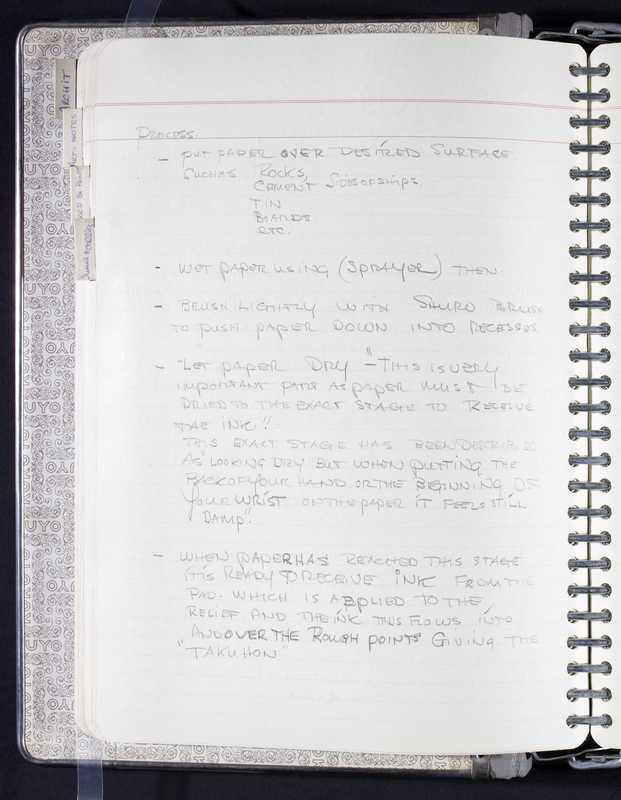 ARCHIT
ART. NOTES
PROCESS.
- PUT PAPER OVER DESIRED SURFACE.
SUCH AS ROCKS,
CEMENT SIDES OF SHIPS.
TIN
BOARDS.
etc.
- WET PAPER USING (SPRAYER) THEN.
- BRUSH LIGHTLY WITH SHURO BRUSH
TO PUSH PAPER DOWN INTO RECESSES
- LET PAPER DRY - "THIS IS VERY
IMPORTANT PART AS PAPER MUST BE
DRIED TO THE EXACT STAGE TO RECEIVE
THE INK".
THIS EXACT STAGE HAS BEEN DESCRIBED
AS "LOOKING DRY BUT WHEN PUTTING THE
BACK OF YOUR HAND OR THE BEGINNING OF
YOUR WRIST ON THE PAPER IT FEELS STILL
DAMP".
- WHEN PAPER HAS REACHED THIS STAGE
IT IS READY TO RECEIVE INK FROM THE
PAD. WHICH IS APPLIED TO THE
RELIEF AND THE INK THUS FLOWS INTO
AND OVER THE ROUGH POINTS GIVING THE
"TAKUHON"